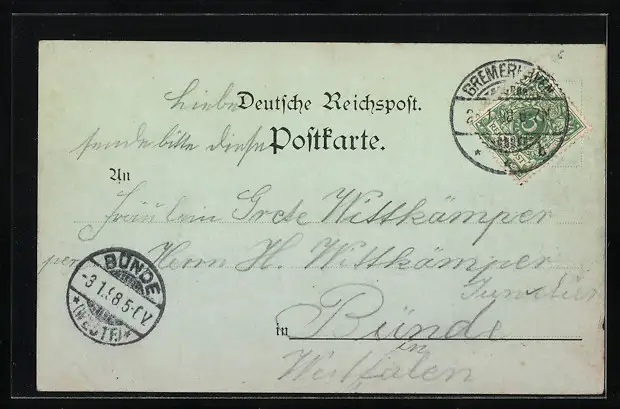 Deutsche Reichspost.
Postkarte.
Liebe
sende bitte diese
An
Fräulein Grete Wittkämper
per Herrn H. Wittkämper
in Bünde
in
Westfalen
BREMERHAVEN
BÜNDE
-3.1.98.5-6V.
*(WESTF.)*
5